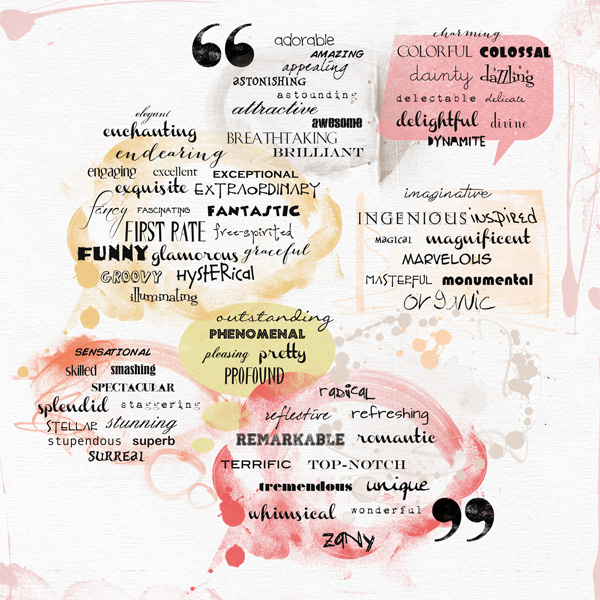 adorable
AMAZING
appealing
ASTONISHING
astounding
attractive
awesome
BREATHTAKING
BRILLIANT
charming
COLORFUL COLOSSAL
dainty dazzling
delectable delicate
delightful divine
DYNAMITE
elegant
enchanting
endearing
engaging excellent EXCEPTIONAL
exquisite EXTRAORDINARY
fancy FASCINATING FANTASTIC
FIRST RATE free-spirited
FUNNY glamorous graceful
GROOVY HYSTERICAL
illuminating
imaginative
INGENIOUS inspired
MAGICAL magnificent
MARVELOUS
MASTERFUL monumental
ORGANIC
outstanding
PHENOMENAL
pleasing pretty
PROFOUND
SENSATIONAL
skilled smashing
SPECTACULAR
splendid staggering
STELLAR stunning
stupendous superb
SURREAL
radical
reflective refreshing
REMARKABLE romantic
TERRIFIC TOP-NOTCH
tremendous unique
whimsical wonderful
zany